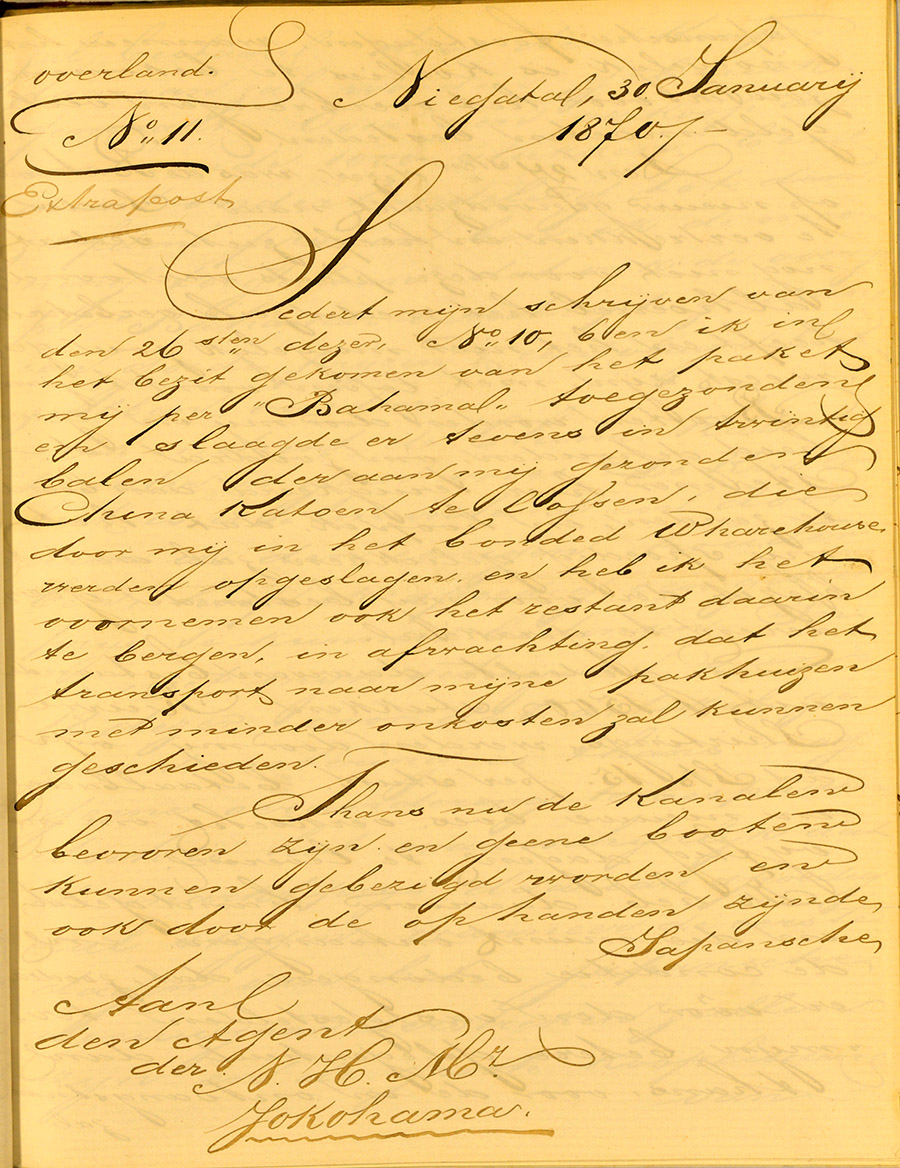 overland.
Niegatal, 30 Januarij
No. 11.
1870./-
Extrapost
Sedert mijn schrijven van
den 26sten dezer, No. 10, ben ik in
het bezit gekomen van het paket
mij per "Bahama" toegezonden
en slaagde er tevens in twintig
balen der aan mij gezonden
China Katoen te lossen, die
door mij in het bonded Wharehouse
werden opgeslagen. en heb ik het
voornemen ook het restant daarin
te bergen, in afwachting, dat het
transport naar mijne pakhuizen
met minder onkosten zal kunnen
geschieden.
Thans nu de Kanalen
bevroren zijn en geene booten
kunnen gebezigd worden en
ook door de ophanden zijnde
Japansche
Aan
den Agent
der N. H. Mr.
Jokohama.